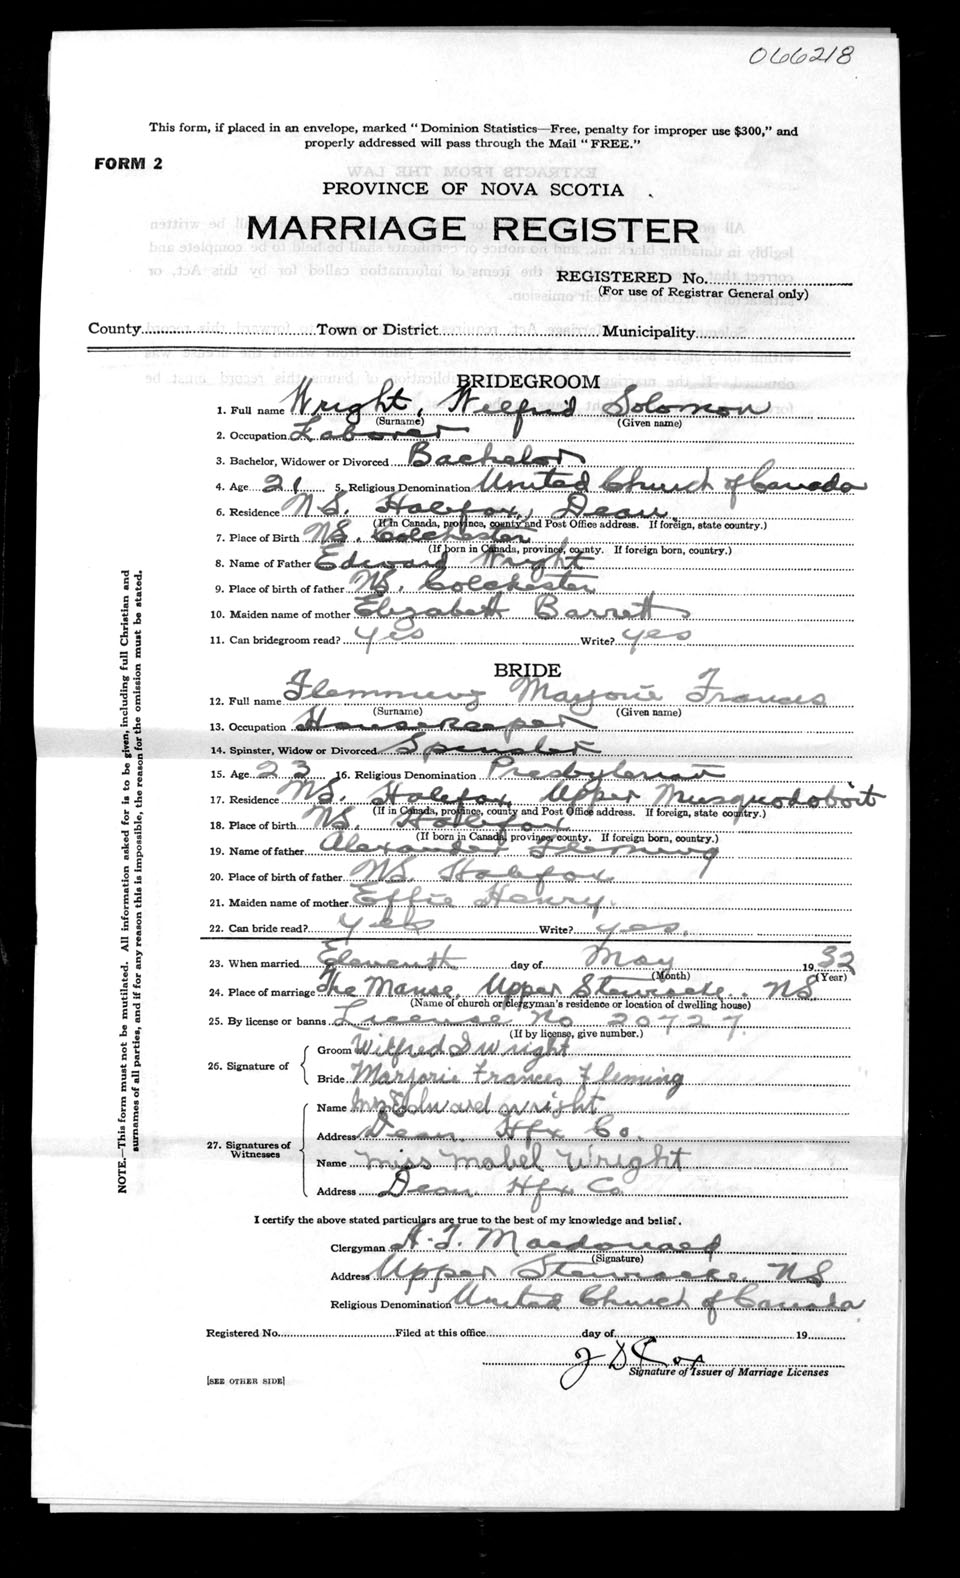 066218
This form, if placed in an envelope, marked "Dominion Statistics—Free, penalty for improper use $300," and
properly addressed will pass through the Mail "FREE."
FORM 2
PROVINCE OF NOVA SCOTIA
MARRIAGE REGISTER
REGISTERED No.
(For use of Registrar General only)
County Town or District Municipality
BRIDEGROOM
1. Full name Wright, Wilfrid Solomon
(Surname) (Given name)
2. Occupation Laborer
3. Bachelor, Widower or Divorced Bachelor
4. Age 21 5. Religious Denomination United Church of Canada
6. Residence N.S. Halifax, Dean
(If in Canada, province, county and Post Office address. If foreign, state country.)
7. Place of Birth N.S. Colchester
(If born in Canada, province, county. If foreign born, country.)
8. Name of Father Edward Wright
9. Place of birth of father N.S. Colchester
10. Maiden name of mother Elizabeth Barrett
11. Can bridegroom read? yes Write? yes
BRIDE
12. Full name Flemming Marjorie Frances
(Surname) (Given name)
13. Occupation Housekeeper
14. Spinster, Widow or Divorced Spinster
15. Age 23 16. Religious Denomination Presbyterian
17. Residence N.S. Halifax, Upper Musquodoboit
(If in Canada, province, county and Post Office address. If foreign, state country.)
18. Place of birth N.S. Halifax
(If born in Canada, province, county. If foreign born, country.)
19. Name of father Alexander Fleming
20. Place of birth of father N.S. Halifax
21. Maiden name of mother Effie Henry
22. Can bride read? yes Write? yes.
23. When married Eleventh day of May 1932
(Month) (Year)
24. Place of marriage The Manse, Upper Stewiacke, N.S.
(Name of church or clergyman's residence or location of dwelling house)
25. By license or banns License No 20727
(If by license, give number.)
26. Signature of
Groom Wilfred S Wright
Bride Marjorie Frances Fleming
27. Signatures of Witnesses
Name Mrs Edward Wright
Address Dean, Hfx Co.
Name Miss Mabel Wright
Address Dean Hfx Co
I certify the above stated particulars are true to the best of my knowledge and belief.
Clergyman A. F. Macdonald
(Signature)
Address Upper Stewiacke, N.S
Religious Denomination United Church of Canada
Registered No. Filed at this office day of 19
J D Cox
Signature of Issuer of Marriage Licenses
[SEE OTHER SIDE]
NOTE.—This form must not be mutilated. All information asked for is to be given, including full Christian and
surnames of all parties, and if for any reason this is impossible, the reason for the omission must be stated.